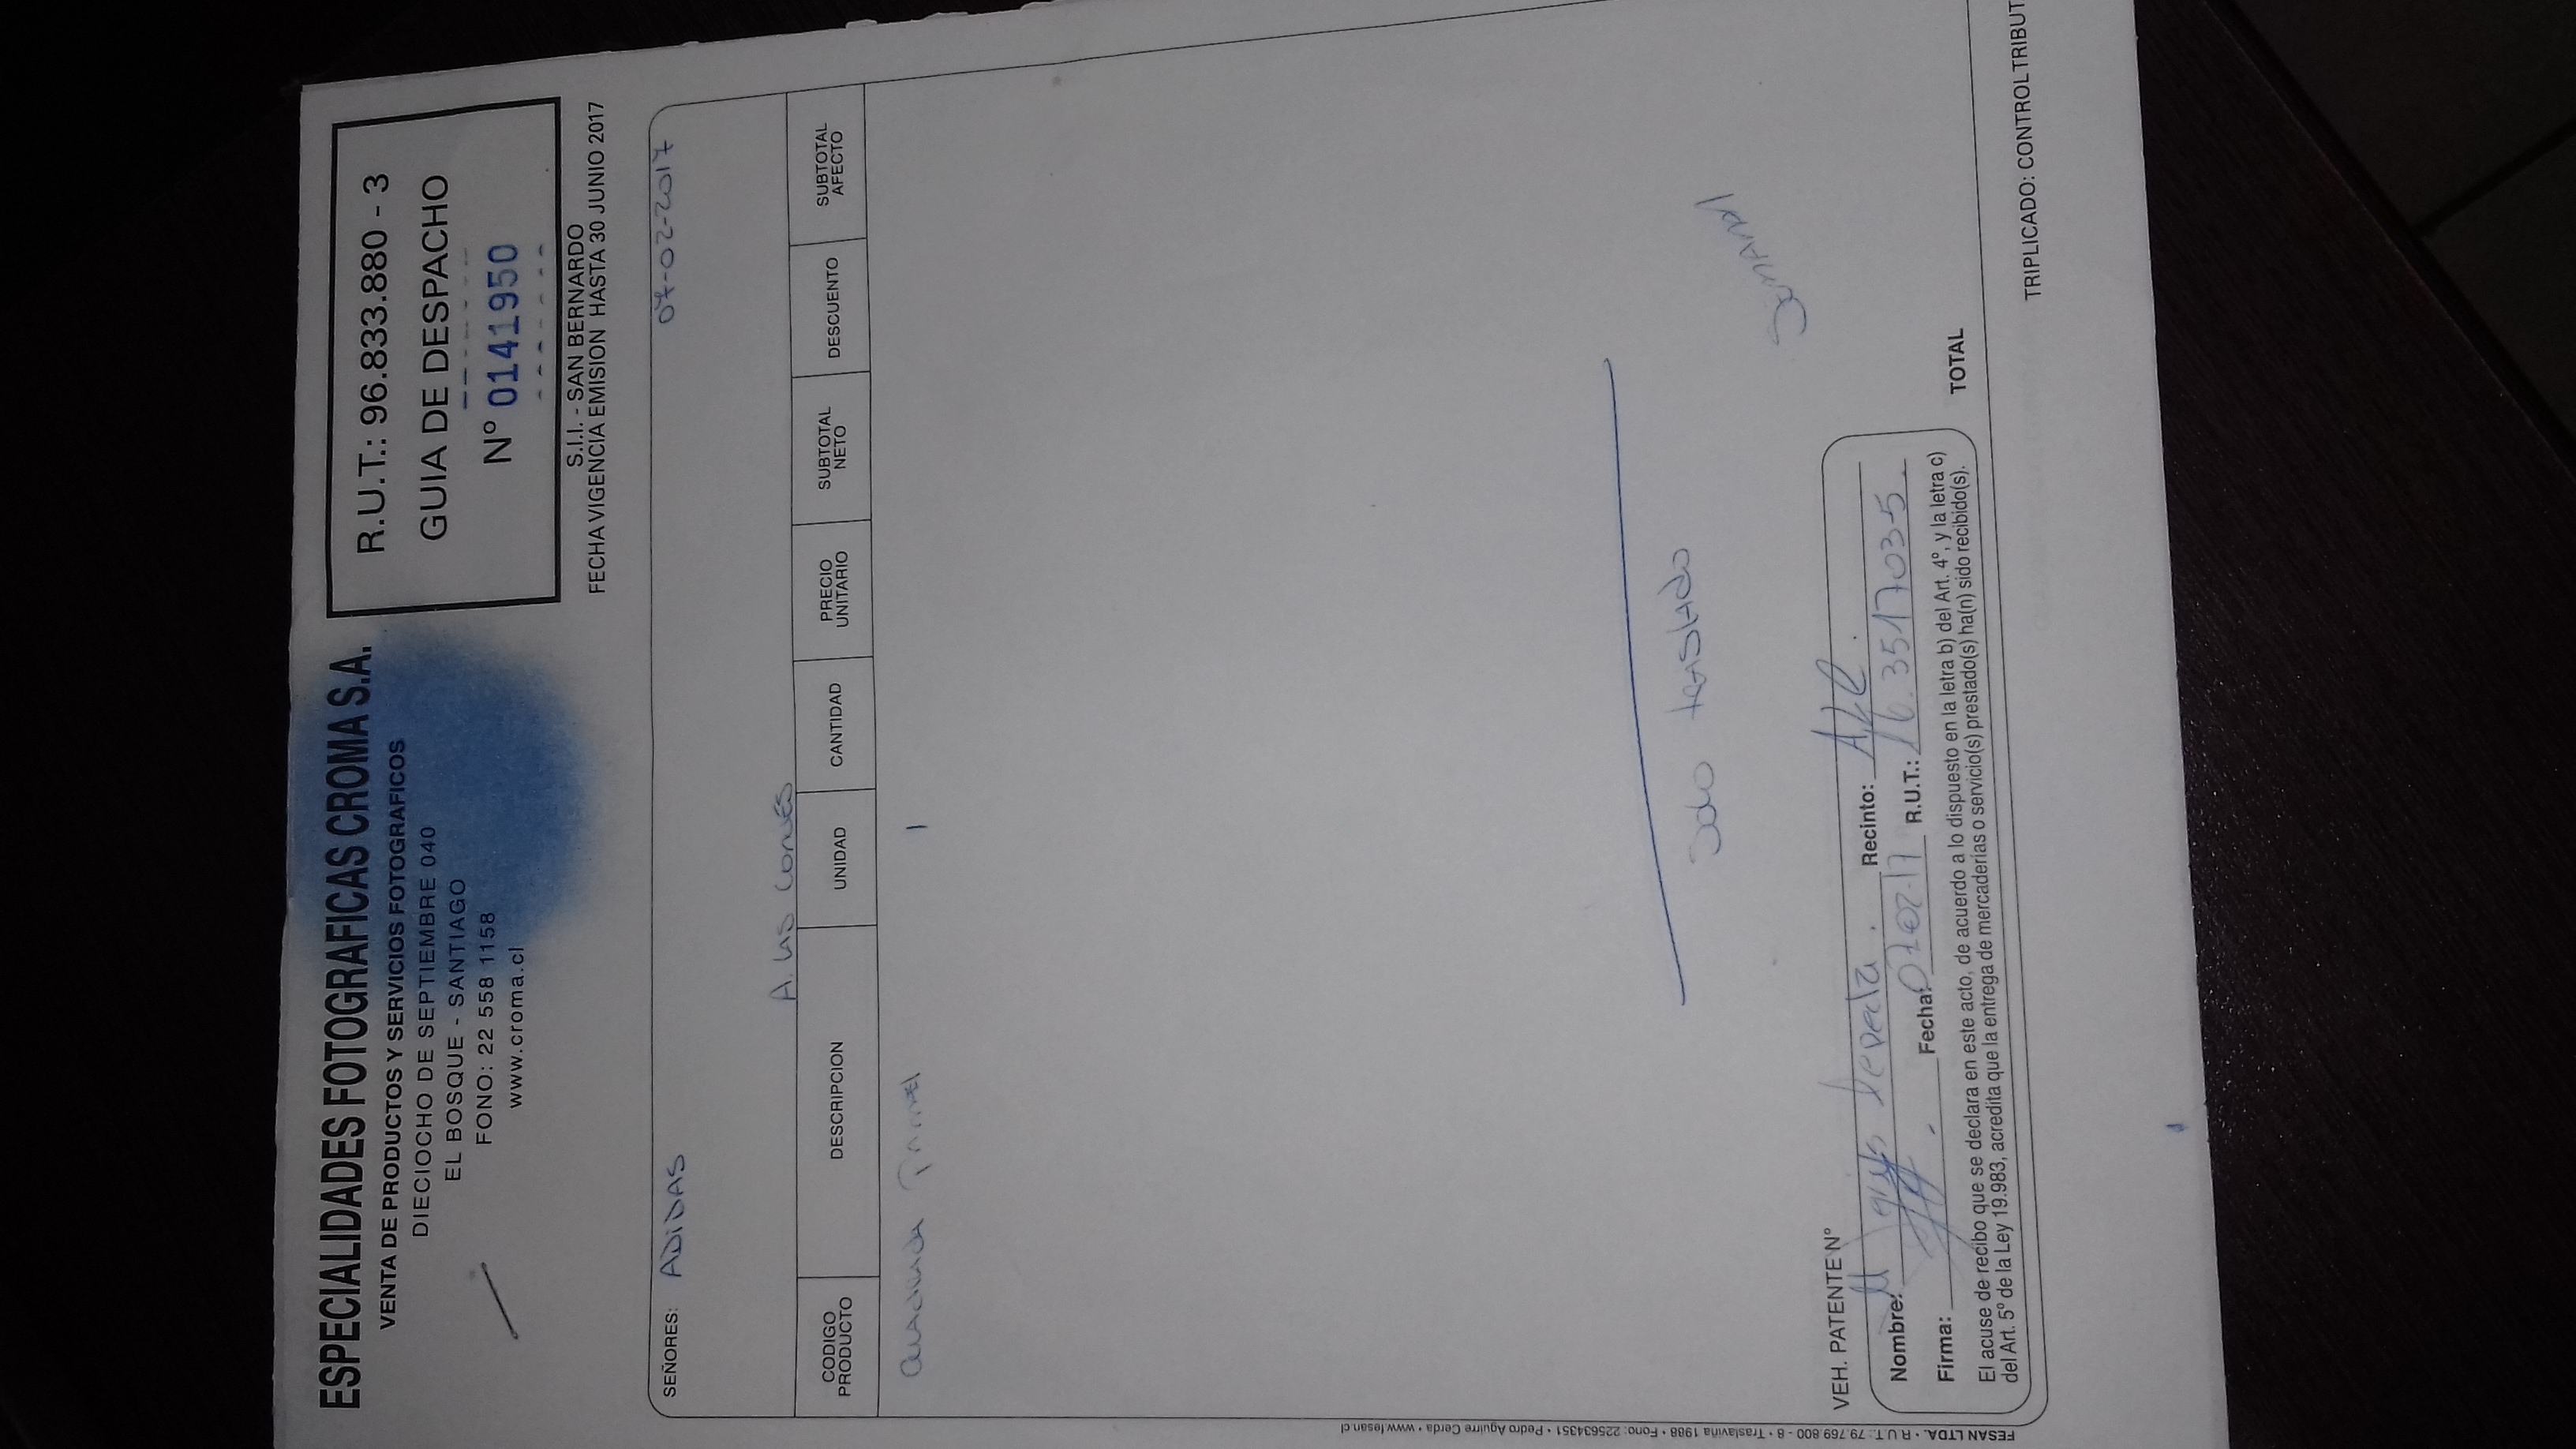 ESPECIALIDADES FOTOGRAFICAS CROMA S.A.
VENTA DE PRODUCTOS Y SERVICIOS FOTOGRAFICOS
DIECIOCHO DE SEPTIEMBRE 040
EL BOSQUE - SANTIAGO
FONO: 22 558 1158
www.croma.cl
R.U.T.: 96.833.880 - 3
GUIA DE DESPACHO
Nº 0141950
S.I.I. - SAN BERNARDO
FECHA VIGENCIA EMISION HASTA 30 JUNIO 2017
SEÑORES: ADIDAS 07-02-2017
A. LAS CONDES
CODIGO PRODUCTO DESCRIPCION UNIDAD CANTIDAD PRECIO UNITARIO SUBTOTAL NETO DESCUENTO SUBTOTAL AFECTO
1
Solo traslado
VEH. PATENTE Nº
Nombre: Recinto: ALC.
Firma: Fecha: 07-02-17 R.U.T.: 16.3517035
El acuse de recibo que se declara en este acto, de acuerdo a lo dispuesto en la letra b) del Art. 4º, y la letra c)
del Art. 5º de la Ley 19.983, acredita que la entrega de mercaderías o servicio(s) prestado(s) ha(n) sido recibido(s).
TOTAL
TRIPLICADO: CONTROL TRIBUT
FESAN LTDA. • R.U.T.: 79.769.800 - 8 • Traslaviña 1988 • Fono: 225634351 • Pedro Aguirre Cerda • www.fesan.cl